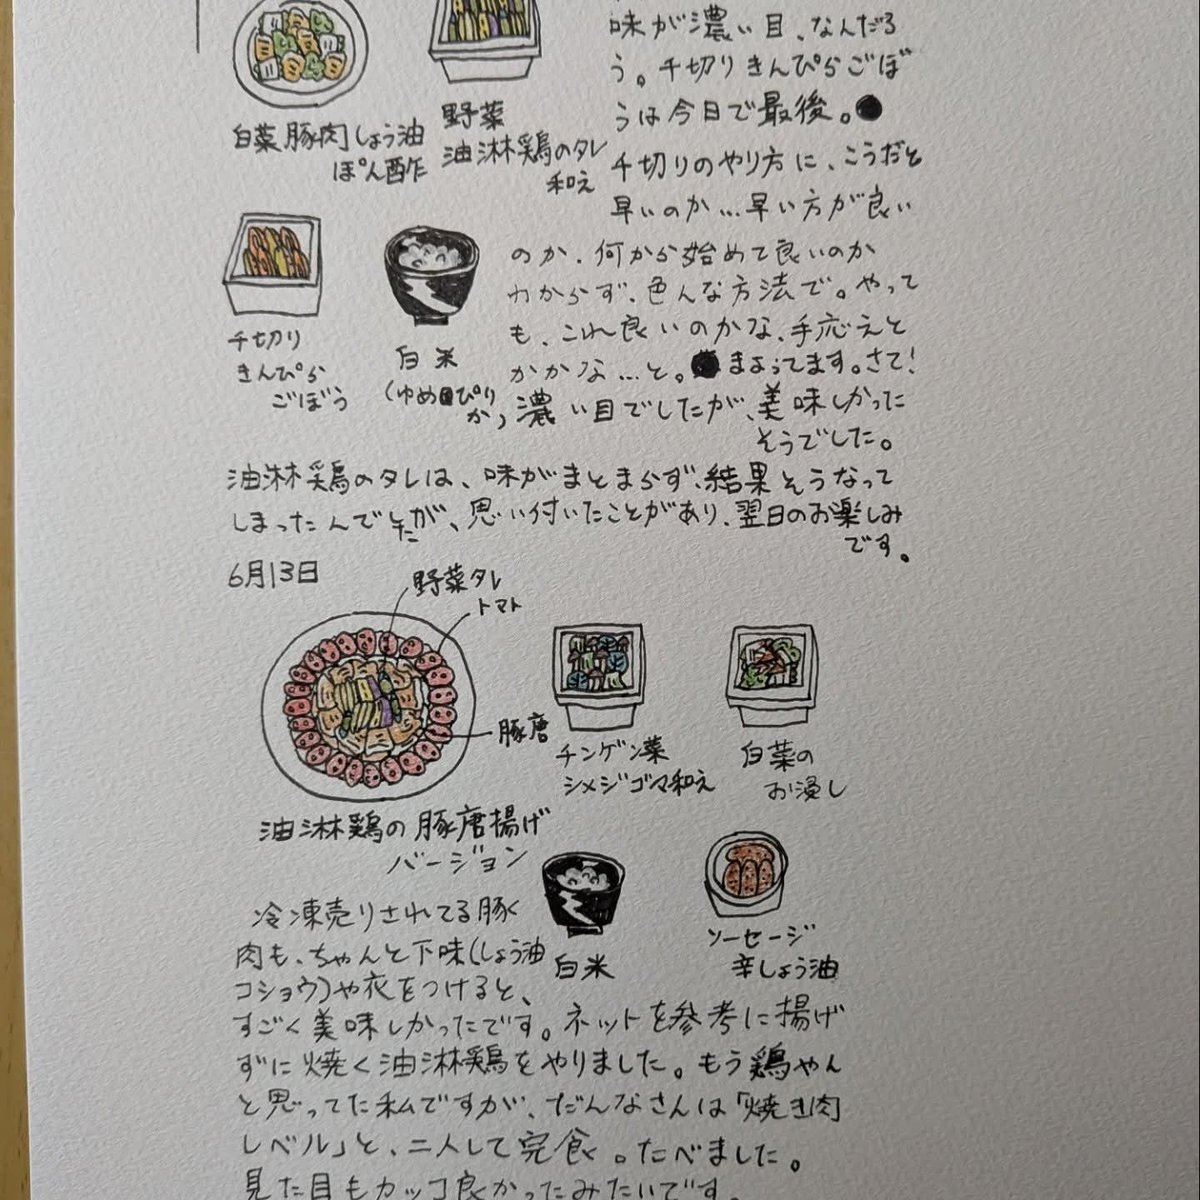 味が濃い目、なんだろ
う。千切りきんぴらごぼ
うは今日で最後。
千切りのやり方に、こうだと
早いのか…早い方が良い
白菜豚肉しょう油
ぽん酢
野菜
油淋鶏のタレ
和え
のか、何から始めて良いのか
わからず、色んな方法で。やって
も、これ良いのかな、手応えと
かかな…と。まよってます。さて!
濃い目でしたが、美味しかった
そうでした。
千切り
きんぴら
ごぼう
白米
(ゆめぴり
か)
油淋鶏のタレは、味がまとまらず、結果そうなって
しまったんでしたが、思い付いたことがあり、翌日のお楽しみ
です。
6月13日
野菜タレ
トマト
豚唐
油淋鶏の豚唐揚げ
バージョン
チンゲン菜
シメジゴマ和え
白菜の
お浸し
白米
ソーセージ
辛しょう油
冷凍売りされてる豚く
肉も、ちゃんと下味(しょう油
コショウ)や衣をつけると、
すごく美味しかったです。ネットを参考に揚げ
ずに焼く油淋鶏をやりました。もう鶏やん
と思ってた私ですが、だんなさんは「焼き肉
レベル」と、二人して完食。たべました。
見た目もカッコ良かったみたいです。